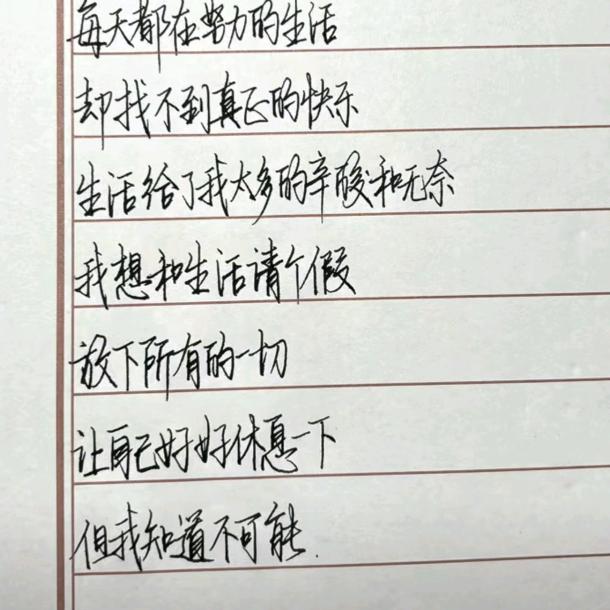 每天都在努力的生活
却找不到真正的快乐
生活给了我太多的辛酸和无奈
我想和生活请个假
放下所有的一切
让自己好好休息一下
但我知道不可能.